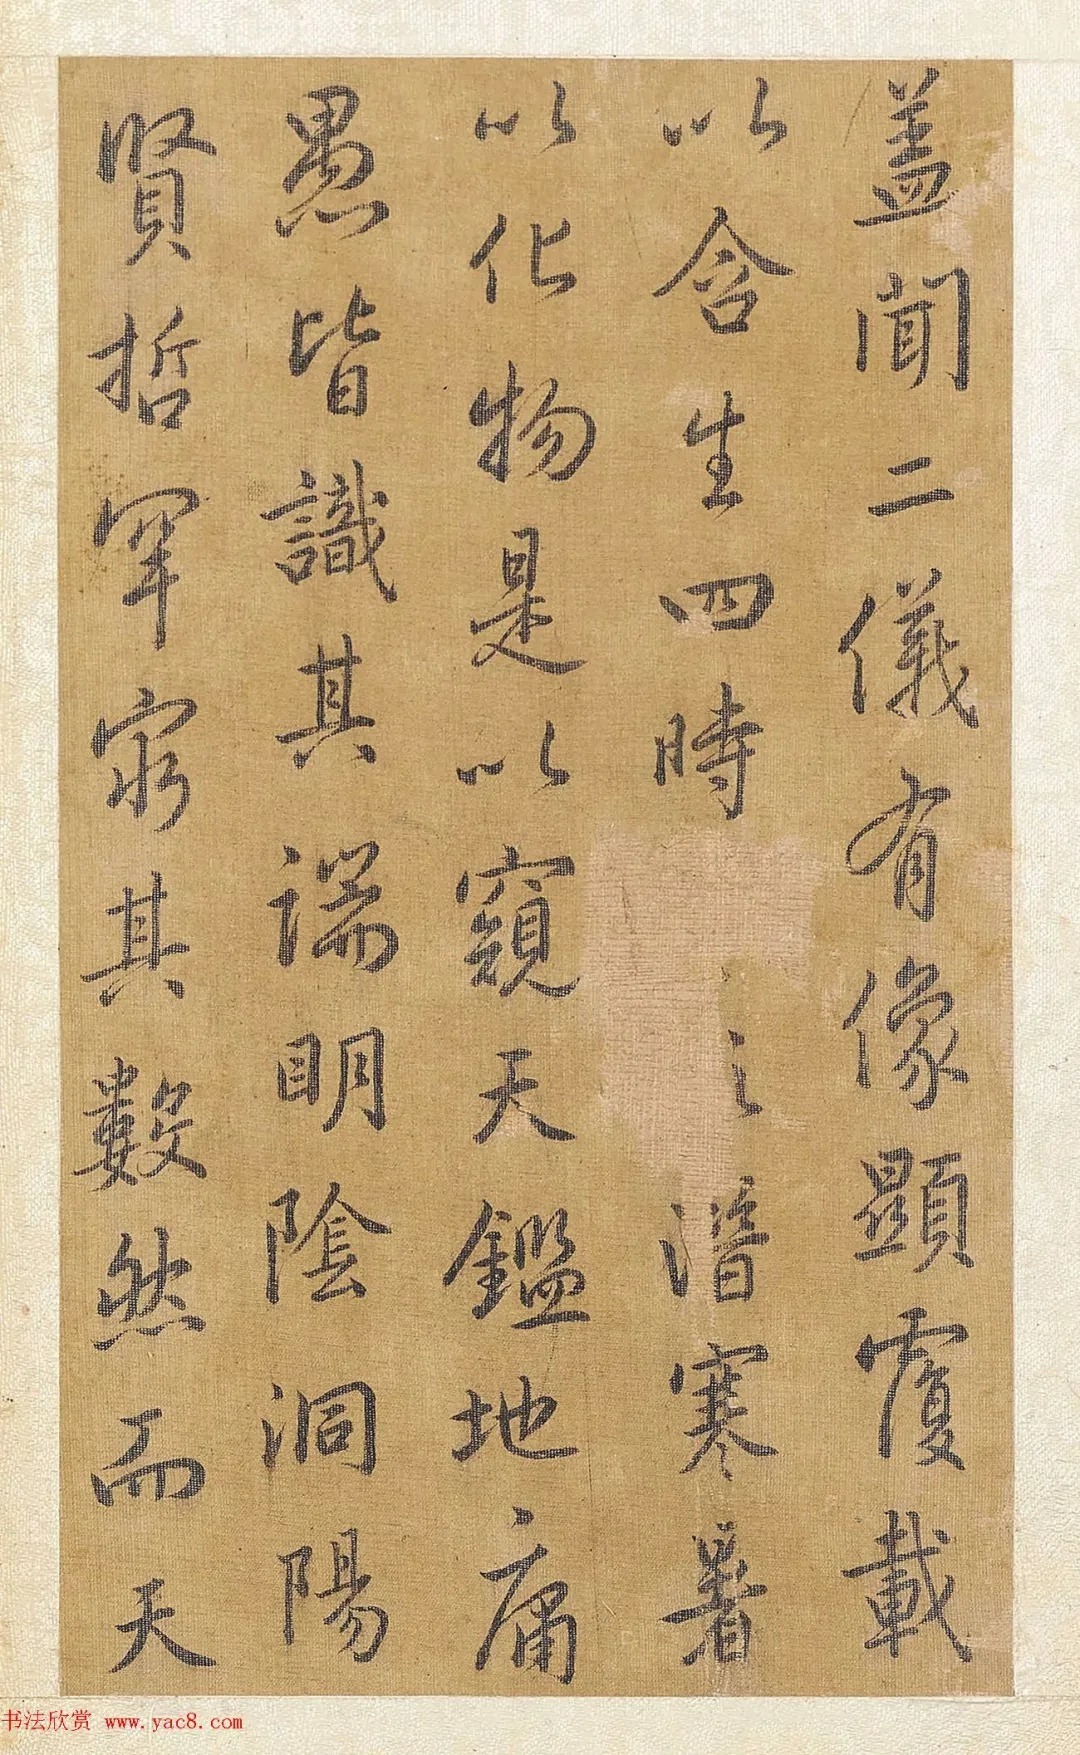 盖聞二儀有像顯覆載
以含生四時潛寒暑
以化物是以窺天鑑地庸
愚皆識其端明陰洞陽
賢哲罕窮其數然而天
书法欣赏 www.yac8.com